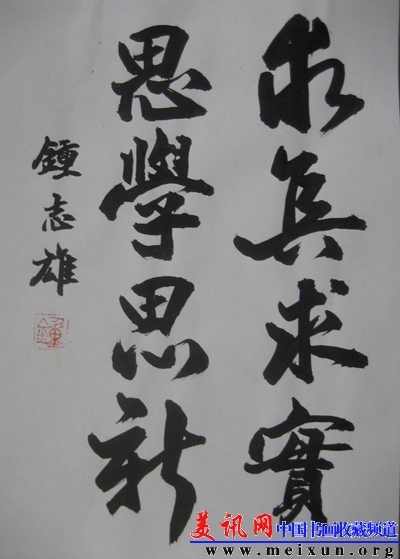 求真求實
思學思新
鍾志雄
美讯网 中国书画收藏频道
www.meixun.org